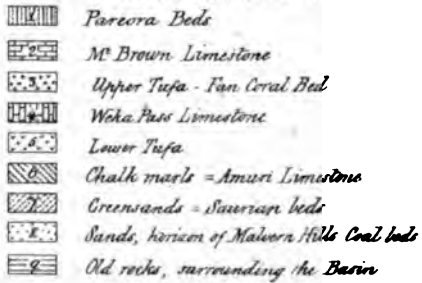 1 Pareora Beds
2 Mt Brown Limestone
3 Upper Tufa - Fan Coral Bed
4 Weka Pass Limestone
5 Lower Tufa
6 Chalk marls = Amuri Limestone
7 Greensands = Saurian beds
8 Sands, horizon of Malvern Hills Coal beds
9 Old rocks, surrounding the Basin